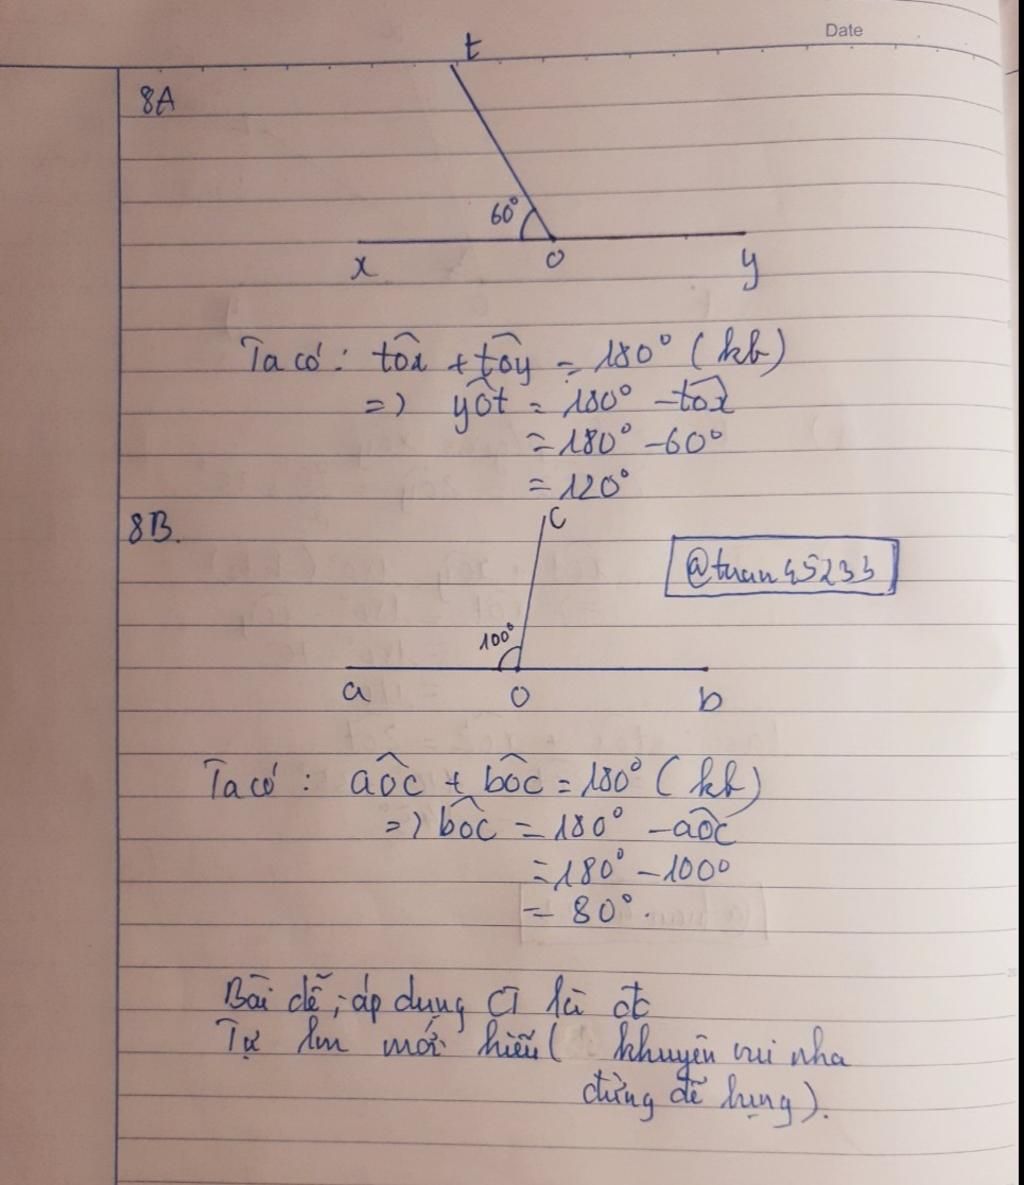 Date
t
8A
60°
x o y
Ta có: tôx + tôy = 180° (kb)
=> yôt = 180° - tôx
= 180° - 60°
= 120°
8B.
c
@tuan45233
100°
a O b
Ta có: aôc + bôc = 180° (kb)
=> bôc = 180° - aôc
= 180° - 100°
= 80°.
Bài dễ, áp dụng CT là đc
Tự lm mới hiểu ( khuyên vui nha
đừng để bụng).